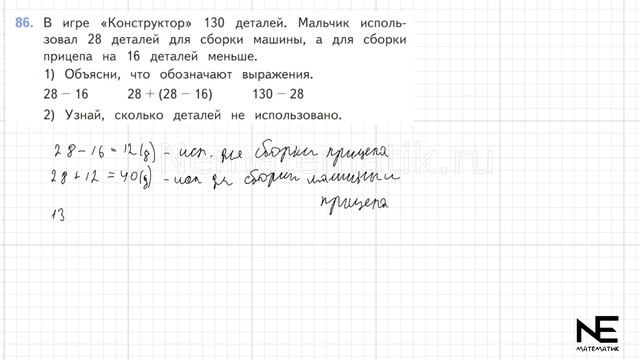 86. В игре «Конструктор» 130 деталей. Мальчик исполь-
зовал 28 деталей для сборки машины, а для сборки
прицепа на 16 деталей меньше.
1) Объясни, что обозначают выражения.
28 – 16 28 + (28 – 16) 130 – 28
2) Узнай, сколько деталей не использовано.
28 – 16 = 12(д) – исп. для сборки прицепа
28 + 12 = 40(д) – исп для сборки машины и
прицепа
13
NE
МАТЕМАТИК